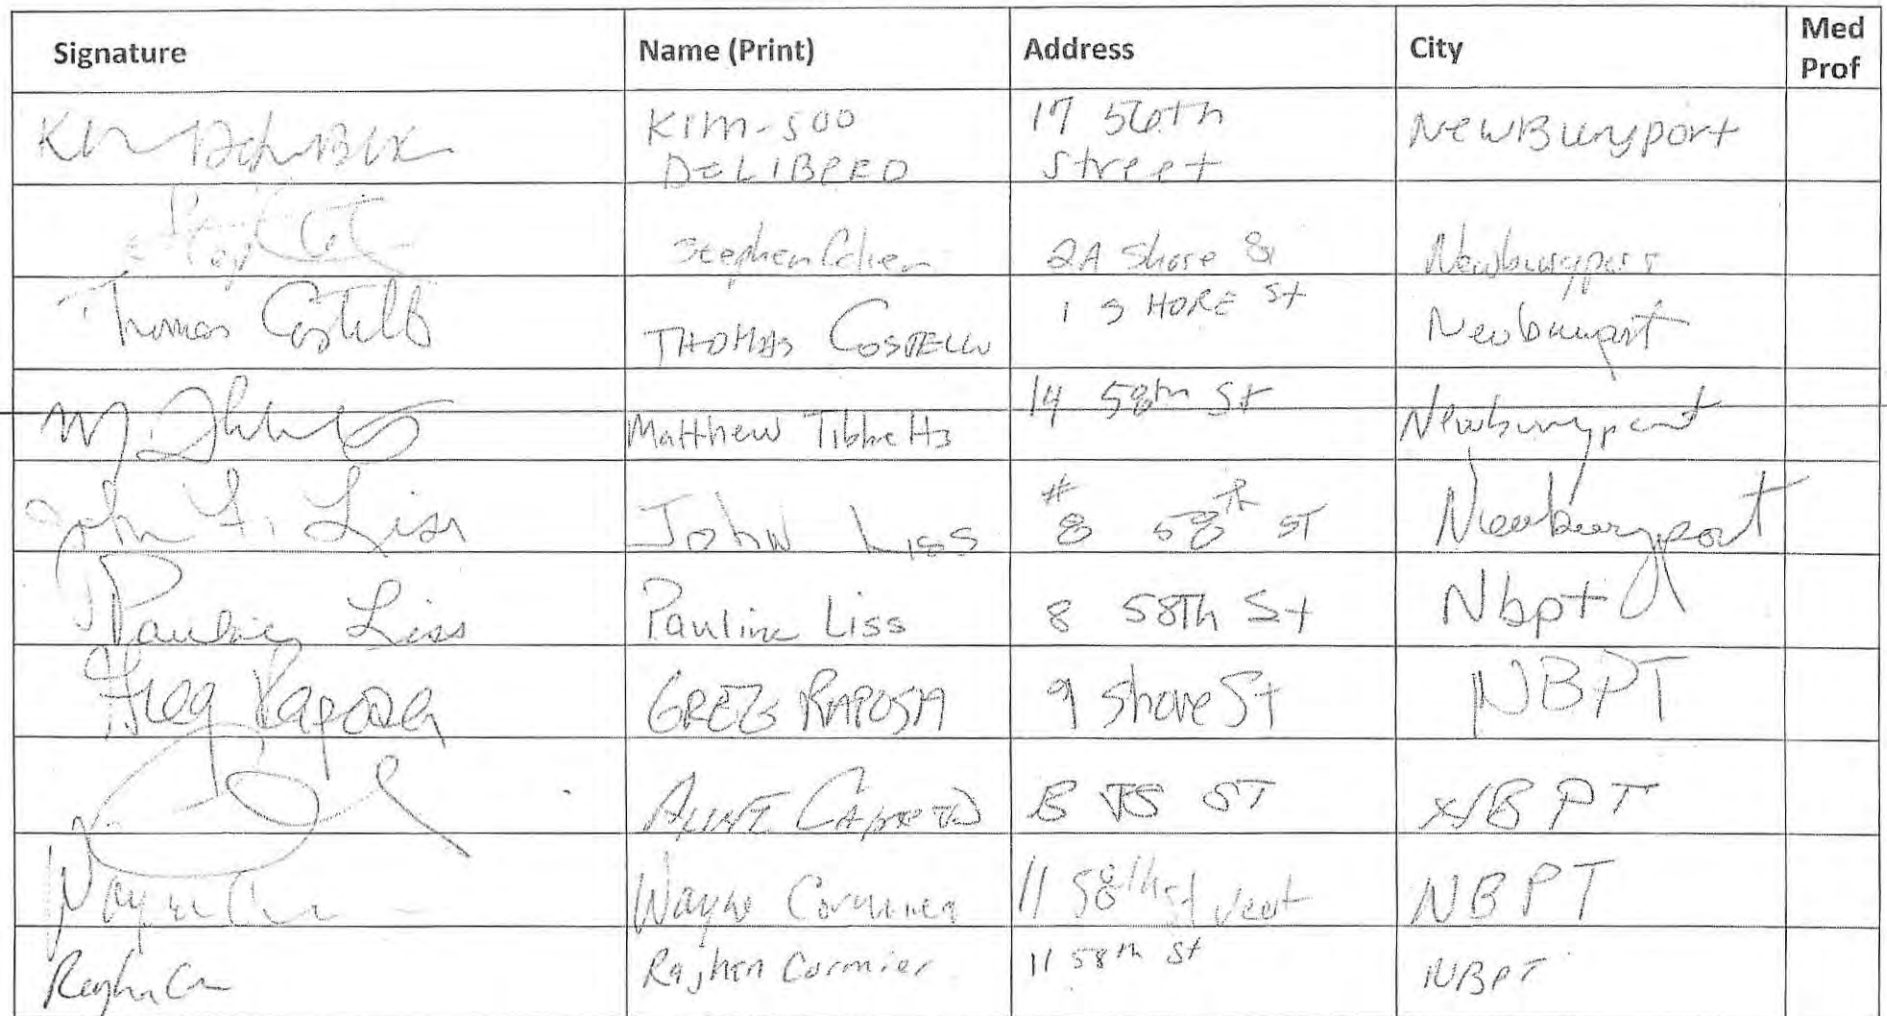 Signature Name (Print) Address City Med Prof
KIM-SOO DELIBERO 17 56th Street NewBuryport
Stephen 2A Shore St Newburyport
Thomas Costello THOMAS COSTELLO 1 SHORE St Newburyport
Matthew Tibbetts 14 58th St Newburyport
John F. Liss John Liss # 8 58th ST Newburyport
Pauline Liss Pauline Liss 8 58Th St Nbpt
Greg Raposa GREG RAPOSA 9 Shore St NBPT
ST NBPT
Wayne Wayne Cormier 11 58th Street NBPT
Cormier 11 58th St NBPT